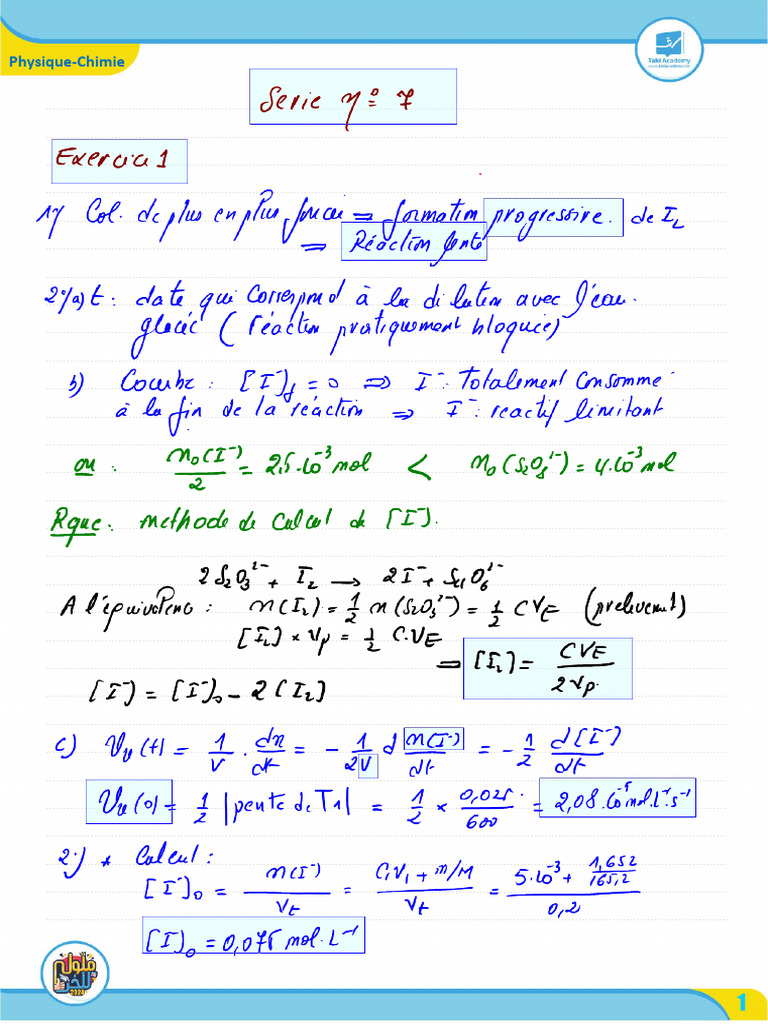 Physique-Chimie
Taki Academy
www.takiacademy.com
Serie n° 7
Exercice 1
1°/ Col. de plus en plus foncée ⇒ formation progressive. de I₂
⇒ Réaction lente
2°/a) t : date qui correspond à la dilution avec l'eau
glacée (réaction pratiquement bloquée)
b) Courbe : [I⁻]f = 0 ⇒ I⁻ : Totalement consommé
à la fin de la réaction ⇒ I⁻ : reactif limitant
ou : n₀(I⁻)/2 = 2,5.10⁻³ mol < n₀(S₂O₈²⁻) = 4.10⁻³ mol
Rque : methode de calcul de [I⁻].
2S₂O₃²⁻ + I₂ → 2I⁻ + S₄O₆²⁻
A l'équivalence : n(I₂) = 1/2 n(S₂O₃²⁻) = 1/2 CVE (prélevement)
[I₂] × Vp = 1/2 C.VE
⇒ [I₂] = CVE/2Vp.
[I⁻] = [I⁻]₀ - 2[I₂]
c) Vv(t) = 1/V . dx/dt = - 1/2V d n(I⁻)/dt = - 1/2 d[I⁻]/dt
Vv(0) = 1/2 |pente de T1| = 1/2 × 0,025/600 = 2,08.10⁻⁵ mol.L⁻¹.s⁻¹
2°) * Calcul :
[I⁻]₀ = n(I⁻)/Vt = C₁V₁ + m/M / Vt = 5.10⁻³ + 1,652/165,2 / 0,2
[I⁻]₀ = 0,075 mol.L⁻¹
2024
1